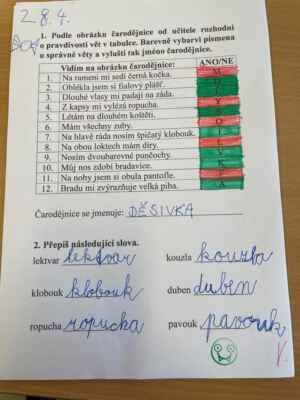 28.4.
1. Podle obrázku čarodějnice od učitele rozhodni
o pravdivosti vět v tabulce. Barevně vybarvi písmena
u správné věty a vylušti tak jméno čarodějnice.
Vidím na obrázku čarodějnice: ANO/NE
1. Na rameni mi sedí černá kočka.
2. Oblékla jsem si fialový plášť.
3. Dlouhé vlasy mi padají na záda.
4. Z kapsy mi vylézá ropucha.
5. Létám na dlouhém koštěti.
6. Mám všechny zuby.
7. Na hlavě ráda nosím špičatý klobouk.
8. Na obou loktech mám díry.
9. Nosím dvoubarevné punčochy.
10. Můj nos zdobí bradavice.
11. Na nohy jsem si obula pantofle.
12. Bradu mi zvýrazňuje velká piha.
Čarodějnice se jmenuje: DĚSIVKA
2. Přepiš následující slova.
lektvar lektvar kouzla kouzla
klobouk klobouk duben duben
ropucha ropucha pavouk pavouk